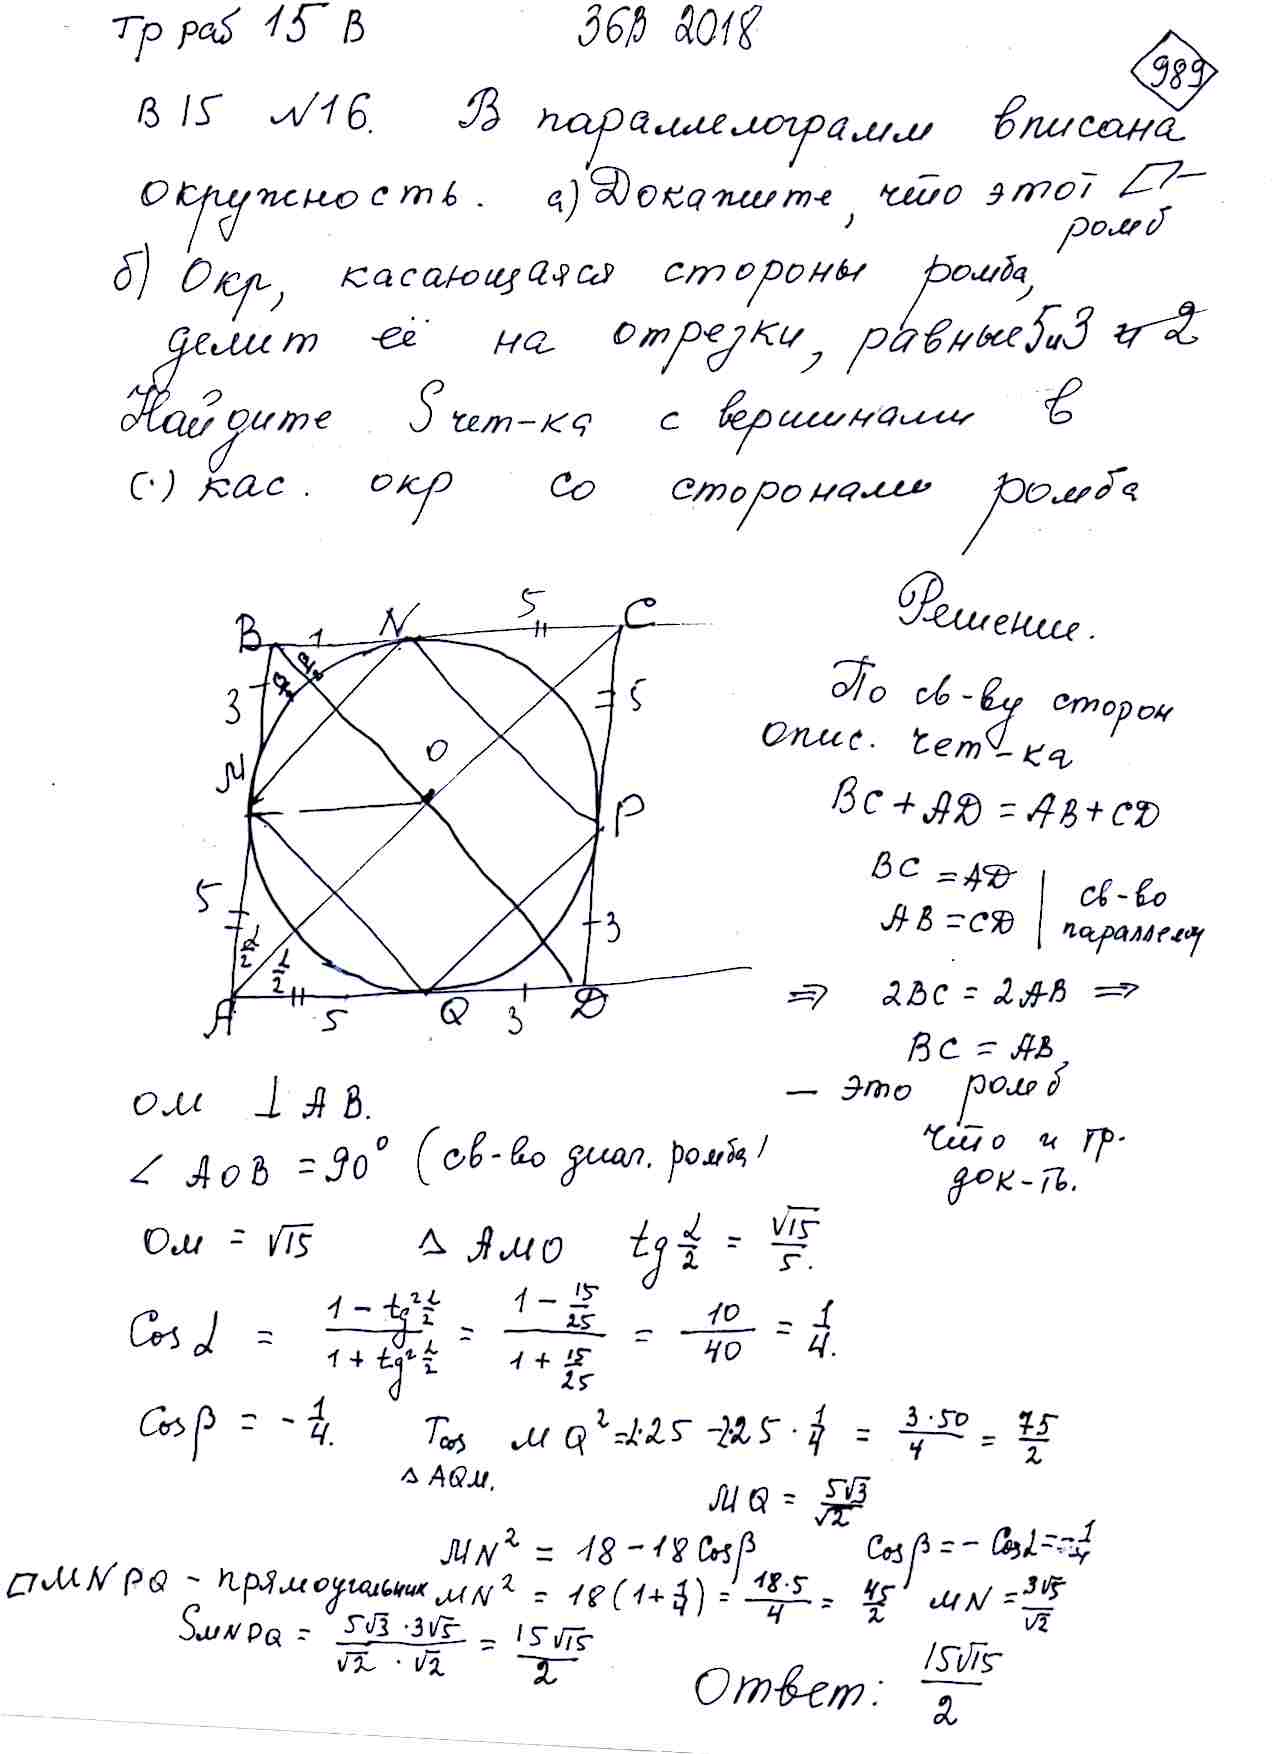 Тр раб 15 В 36В 2018
989
В 15 №16. В параллелограмм вписана
окружность. а) Докажите, что этот ▱-
ромб
б) Окр, касающаяся стороны ромба,
делит её на отрезки, равные 5 и 3 и 2
Найдите S чет-ка с вершинами в
(·) кас. окр со сторонами ромба
Решение.
B 1 N 5 C
3 β/2 β/2 5
M O P
5 α/2 α/2 3
A 5 Q 3 D
По св-ву сторон
опис. чет-ка
BC + AD = AB + CD
BC = AD
AB = CD | св-во
параллелм
⇒ 2BC = 2AB ⇒
BC = AB,
– это ромб
что и тр.
док-ть.
OM ⊥ AB.
∠ AOB = 90° (св-во диаг. ромба)
OM = √15 △ AMO tg α/2 = √15/5.
Cos α = (1 – tg² α/2)/(1 + tg² α/2) = (1 – 15/25)/(1 + 15/25) = 10/40 = 1/4.
Cos β = -1/4. Tcos MQ² = 2·25 – 2·25 · 1/4 = 3·50/4 = 75/2
△ AQM.
MQ = 5√3/√2
MN² = 18 – 18 Cos β Cos β = – Cos α = –1/4
▭ MNPQ – прямоугольник MN² = 18 (1 + 1/4) = 18·5/4 = 45/2 MN = 3√5/√2
S MNPQ = 5√3 · 3√5/√2 · √2 = 15√15/2
Ответ: 15√15/2